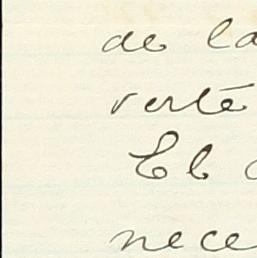 de la
verte
El
nece